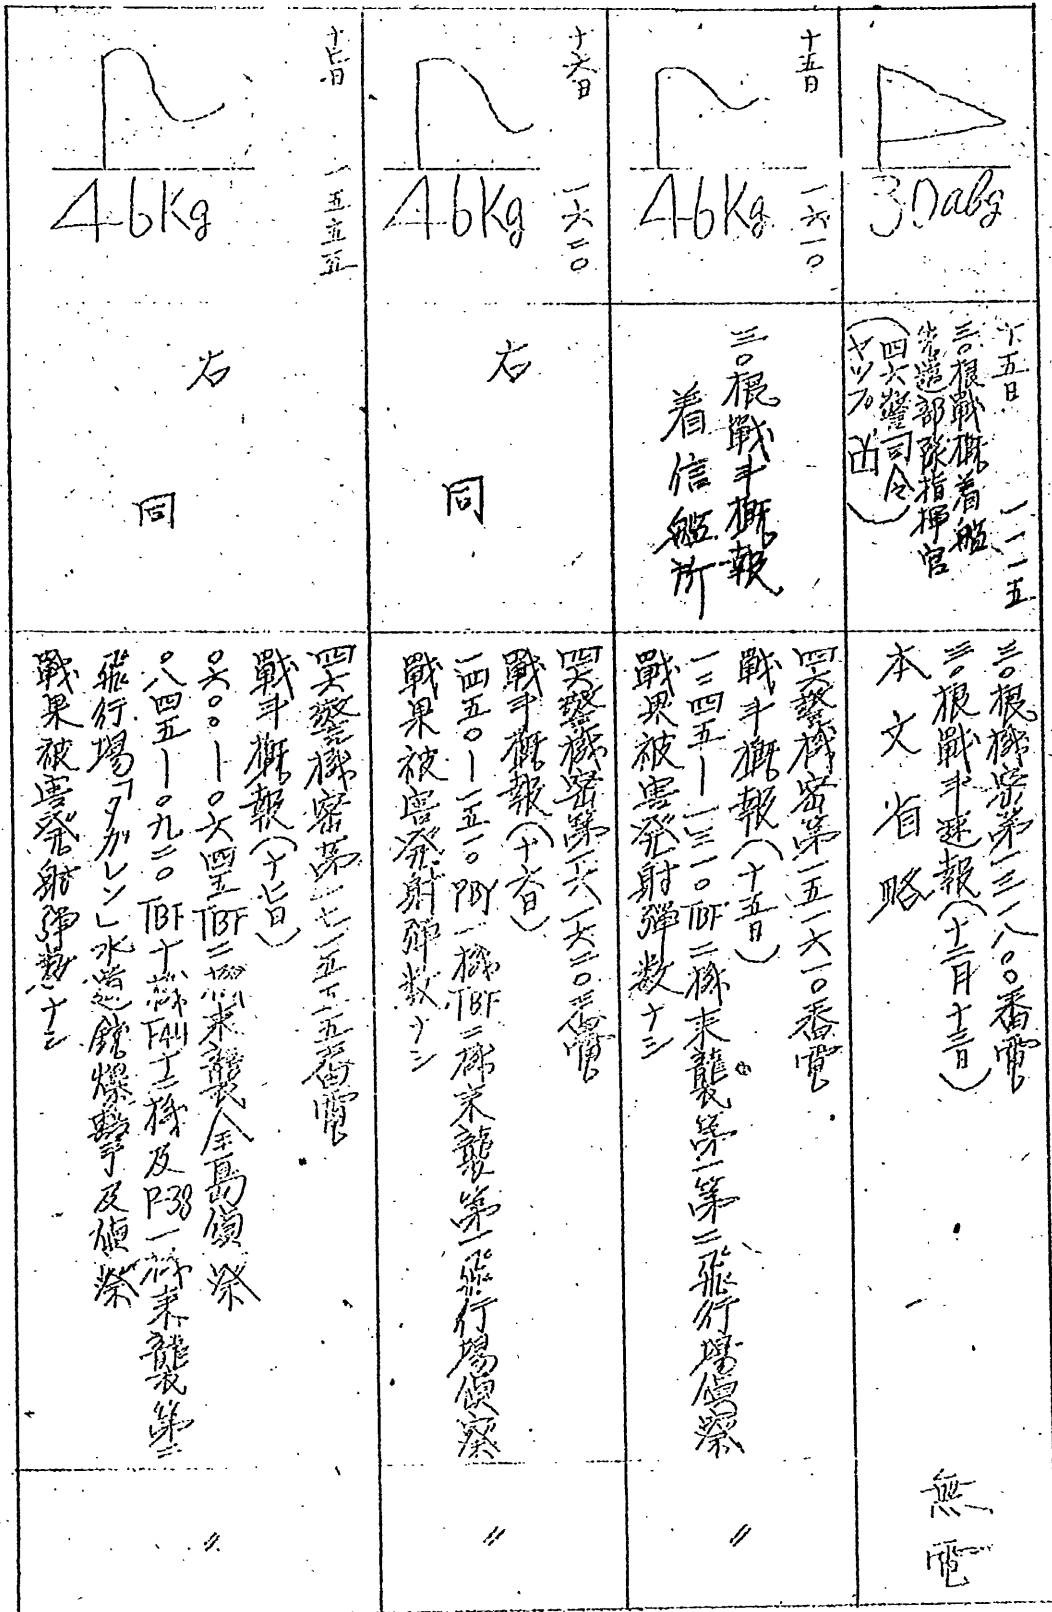 30abg
十五日 一一一五
三〇根戰概着艦
先遣部隊指揮官
(四六警司令)
(ヤップ)
三〇根機密第一三一八〇〇番電
三〇根戰斗速報(十二月十三日)
本文省略
無電
十五日
一六一〇
46Kg
三〇根戰斗概報
着信艦所
四六警機密第一五一六一〇番電
戰斗概報(十五日)
一二四五—一三一〇TBF二機来襲第一第二飛行場偵察
戰果被害発射弾数ナシ
〃
十六日
一六二〇
46Kg
右同
四六警機密第一六一六二〇番電
戰斗概報(十六日)
一四五〇—一五一〇PBY一機TBF二機来襲第一飛行場偵察
戰果被害発射弾数ナシ
〃
十七日
一五五五
46Kg
右同
四六警機密第一七一五五五番電
戰斗概報(十七日)
〇六〇〇—〇六四五TBF二機来襲全島偵察
〇八四五—〇九二〇TBF十機F4U十二機及P-38一機来襲第二
飛行場「タガレン」水道銃爆擊及偵察
戰果被害発射弾数ナシ
〃